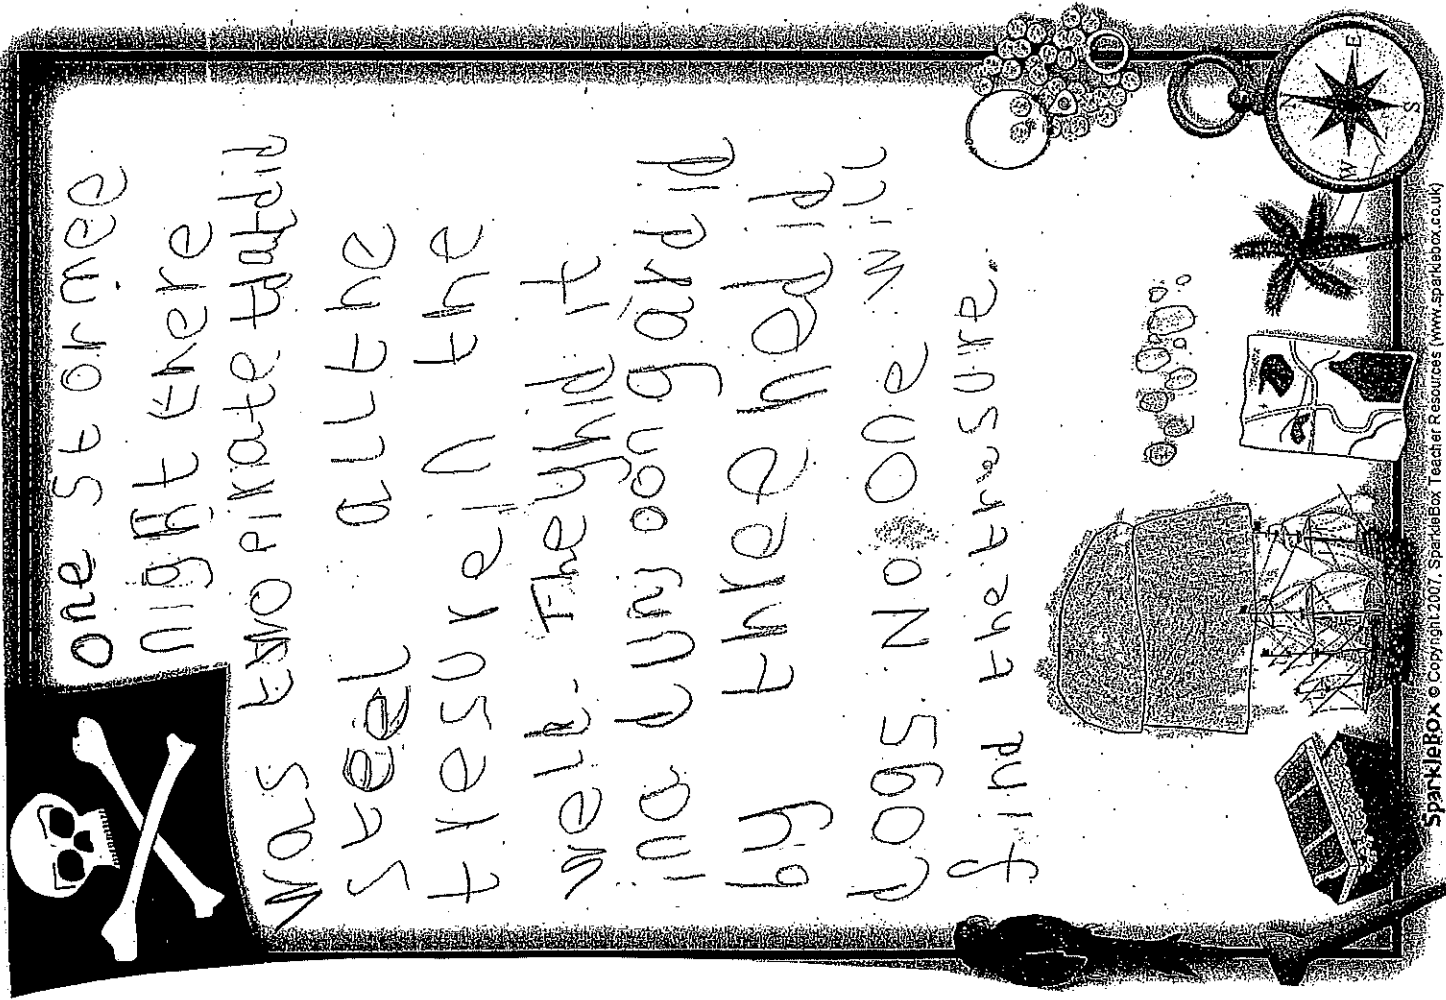 one stormee
night there
was two pirate that did
steel all the
tresure in the
welt. They hid it
in a dunyoon gard id
by three hedid
dogs. No one will
find the trasure.
N
E
S
W
SparkleBox © Copyright 2007, SparkleBox Teacher Resources (www.sparklebox.co.uk)